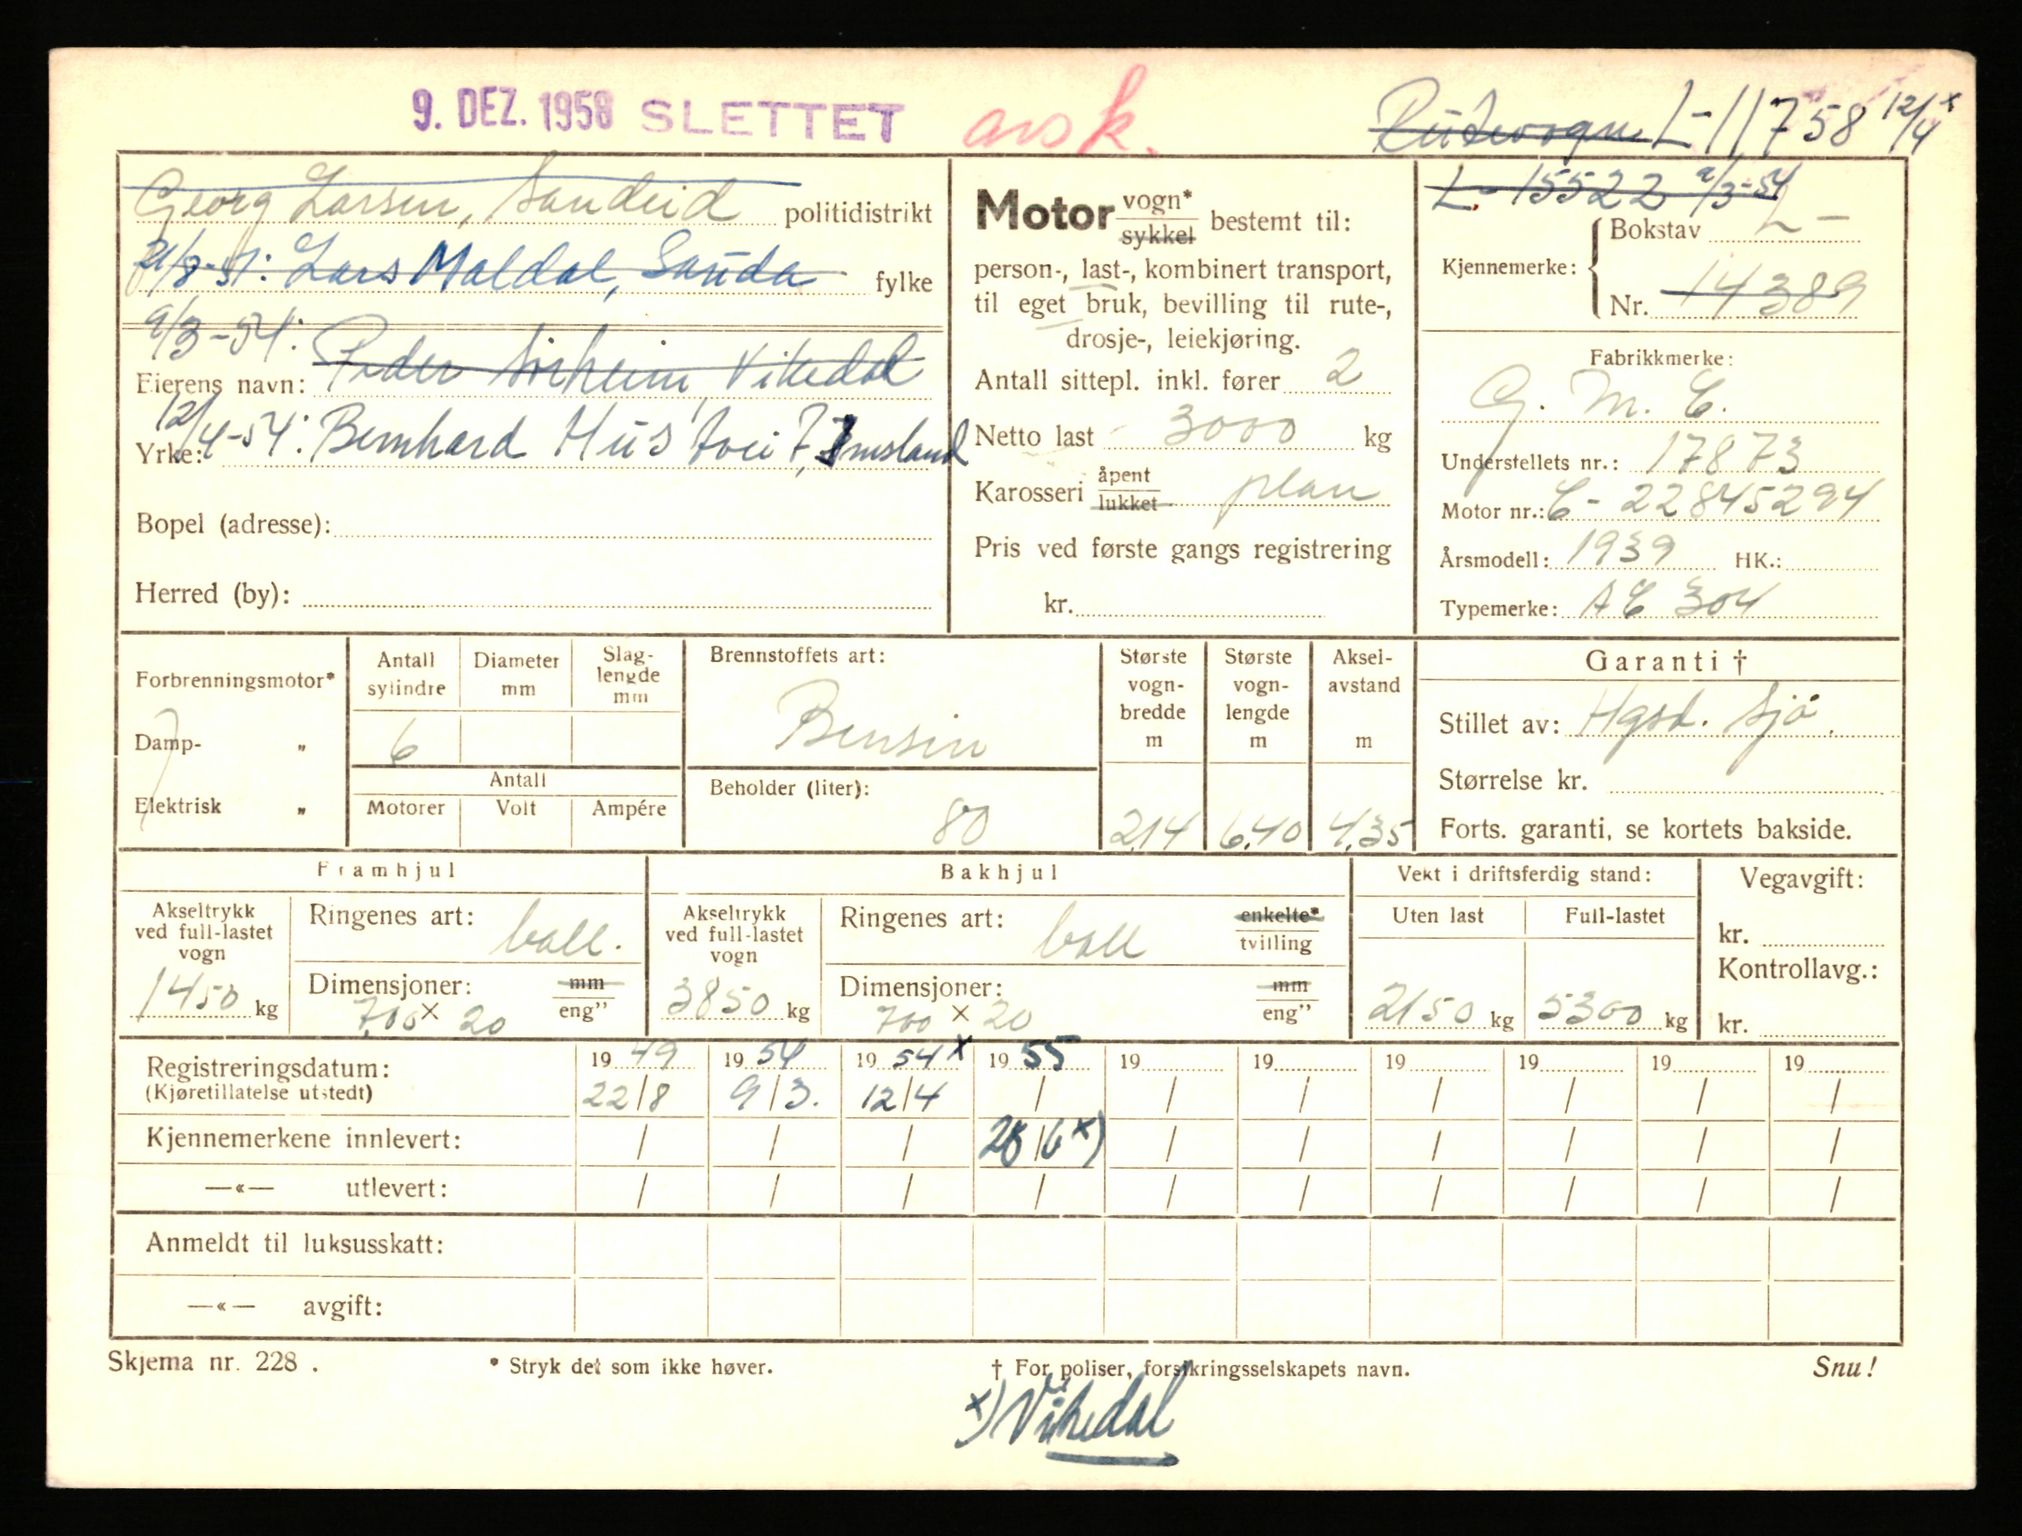 9. DEZ. 1958 SLETTET
Rutevogn L-11758 12/4 x
L-15522 9/3-54
Georg Larsen, Sandeid politidistrikt
21/8-51: Lars Maldal, Sauda fylke
9/3-54:
Eierens navn: Peder Sörheim, Vikedal
12/4-54: Bernhard Hustveit, Imsland
Yrke:
Bopel (adresse):
Herred (by):
Motor vogn* sykkel bestemt til:
person-, last-, kombinert transport,
til eget bruk, bevilling til rute-,
drosje-, leiekjøring.
Antall sittepl. inkl. fører 2
Netto last 3000 kg
Karosseri åpent lukket plan
Pris ved første gangs registrering
kr.
Kjennemerke: Bokstav L-
Nr. 14389
Fabrikkmerke:
G. M. C.
Understellets nr.: 17873
Motor nr.: C-22845294
Årsmodell: 1939 HK.:
Typemerke: AC 304
Forbrenningsmotor*
Damp- "
Elektrisk "
Antall sylindre 6
Diameter mm
Slaglengde mm
Antall
Motorer Volt Ampére
Brennstoffets art:
Bensin
Beholder (liter):
80
Største vognbredde m 2,14
Største vognlengde m 6,40
Akselavstand m 4,35
Garanti †
Stillet av: Hgsd. Sjö.
Størrelse kr.
Forts. garanti, se kortets bakside.
Framhjul
Akseltrykk ved full-lastet vogn
1450 kg
Ringenes art: ball.
Dimensjoner: mm eng"
7,00 x 20
Bakhjul
Akseltrykk ved full-lastet vogn
3850 kg
Ringenes art: ball enkelte* tvilling
Dimensjoner: mm eng"
700 x 20
Vekt i driftsferdig stand:
Uten last Full-lastet
2150 kg 5300 kg
Vegavgift:
kr.
Kontrollavg.:
kr.
Registreringsdatum: 1949 1954 1954 x 1955 19 19 19 19 19 19
(Kjøretillatelse utstedt) 22/8 9/3. 12/4 / / / / / / /
Kjennemerkene innlevert: / / / 28/6 x) / / / / / /
—«— utlevert: / / / / / / / / / /
Anmeldt til luksusskatt:
—«— avgift:
Skjema nr. 228 . * Stryk det som ikke høver. † For poliser, forsikringsselskapets navn. Snu!
x) Vikedal